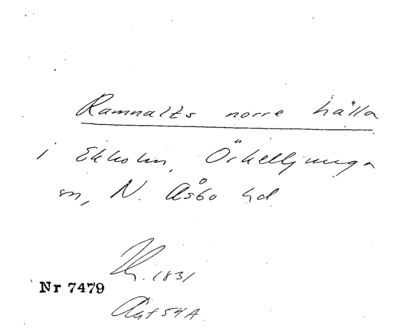 Ramnalts norre hälla
i Ekholm, Örkelljunga
sn, N. Åsbo hd
1831
Nr 7479
54A